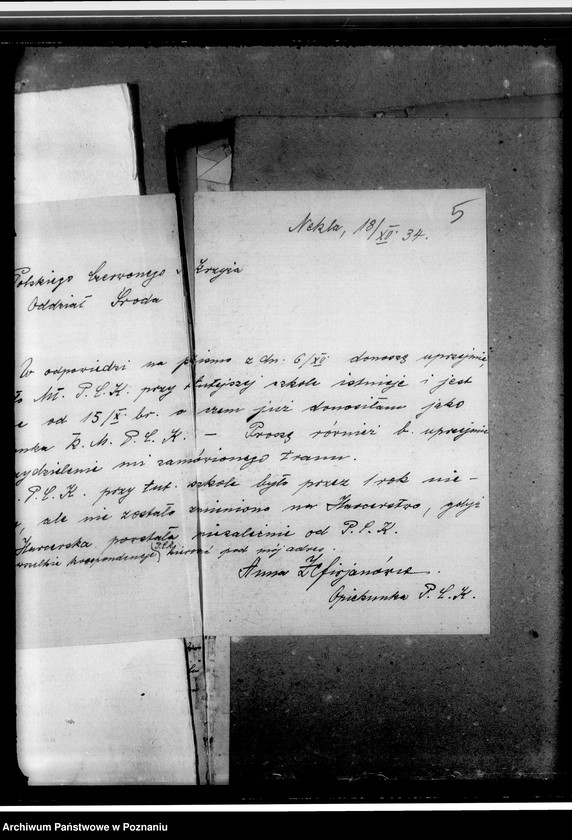 5
Nekla, 18/XII. 34.
Polskiego Czerwonego Krzyża
Oddział Środa
W odpowiedzi na pismo z dn. 6/XII donoszę uprzejmie,
Mł. P.C.K. przy tutejszej szkole istnieje i jest
od 15/X. br. o czem już donosiłam jako
K. M. P.C.K. — Proszę również b. uprzejmie
mi zamówionego tranu.
P.C.K. przy tut. szkole było przez 1 rok nie-
, ale nie zostało zmienione na Harcerstwo, gdyż
Harcerska powstała niezależnie od P.C.K.
korespondencje (P.C.K.) kierować pod mój adres.
Anna
Opiekunka P.C.K.
Archiwum Państwowe w Poznaniu